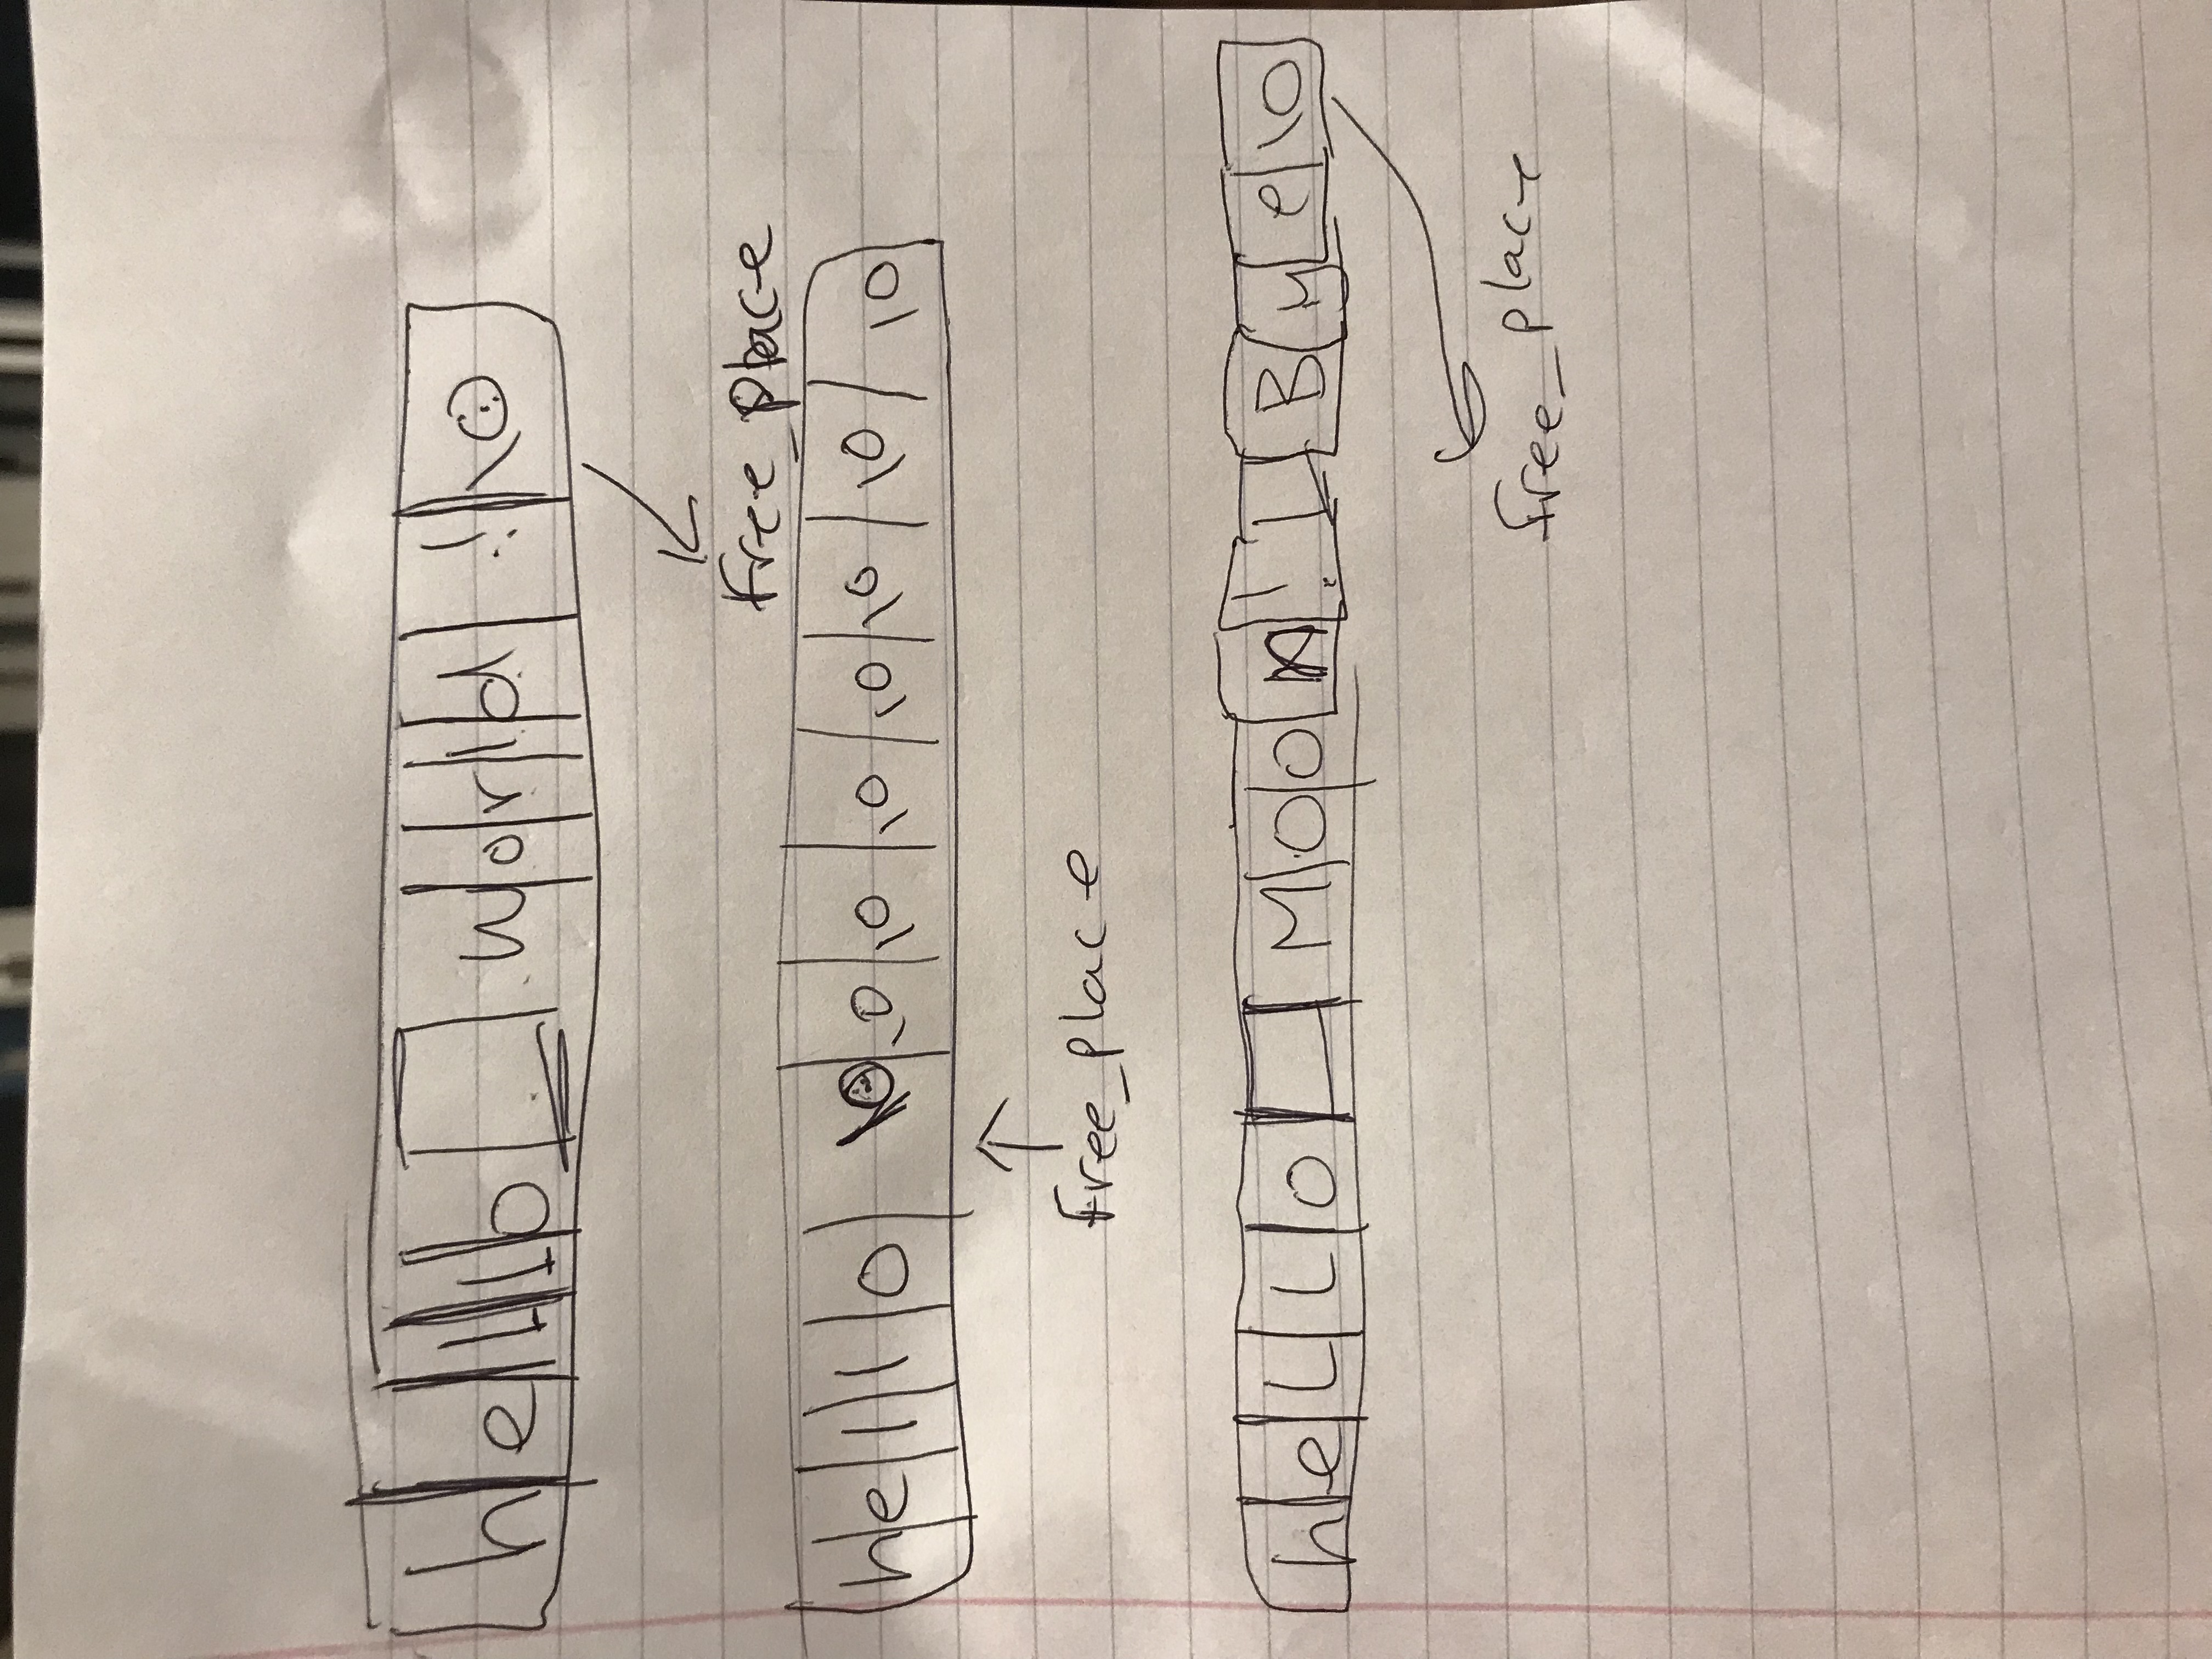 hello world!\0
free_place
hello\0\0\0\0\0\0\0\0
free_place
heLLo Moon! Bye\0
free_place